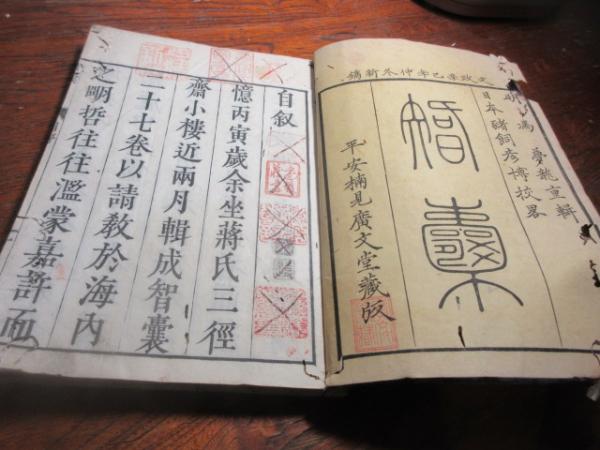 文政辛巳年仲冬新鐫
明馮夢龍重輯
日本豬飼彦博校畧
智囊
平安楠見廣文堂藏版
自叙
憶丙寅歲余坐蔣氏三徑
齋小樓近兩月輯成智囊
二十七卷以請教於海內
之明哲往往濫蒙嘉許而